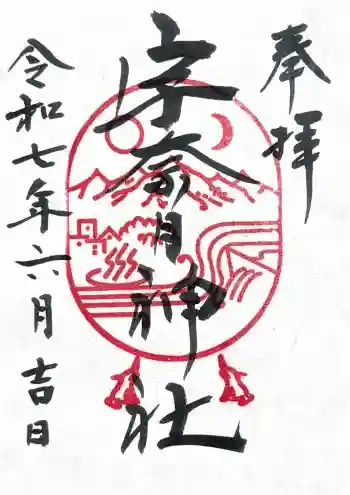 奉拝
宇奈月神社
令和七年六月吉日